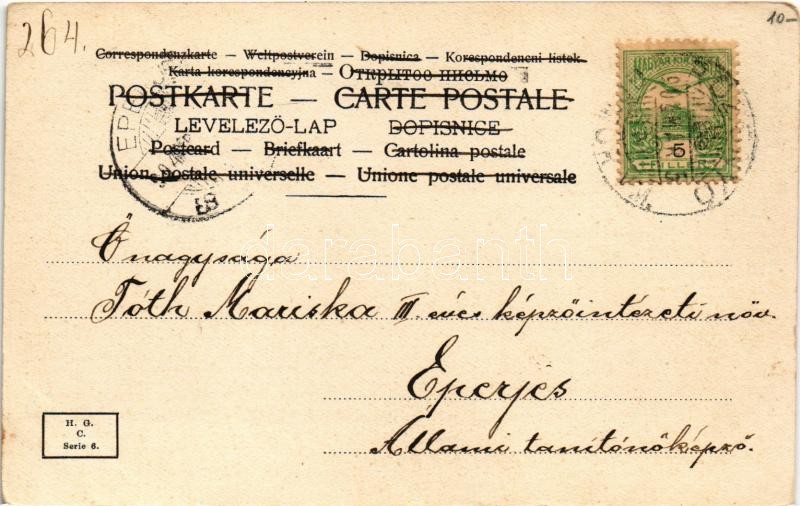 264.
10-
Correspondenzkarte — Weltpostverein — Dopisnica — Korespondencni listek
Karta korespondencyjna — Открытое письмо
POSTKARTE — CARTE POSTALE
LEVELEZŐ-LAP DOPISNICE
Postcard — Briefkaart — Cartolina postale
Union postale universelle — Unione postale universale
MAGYAR KIR. POSTA
5
EPE
darabanth
Őnagysága
Tóth Mariska III. éves képzőintézeti növ.
Eperjes
Állami tanítónőképző.
H. G.
C.
Serie 6.